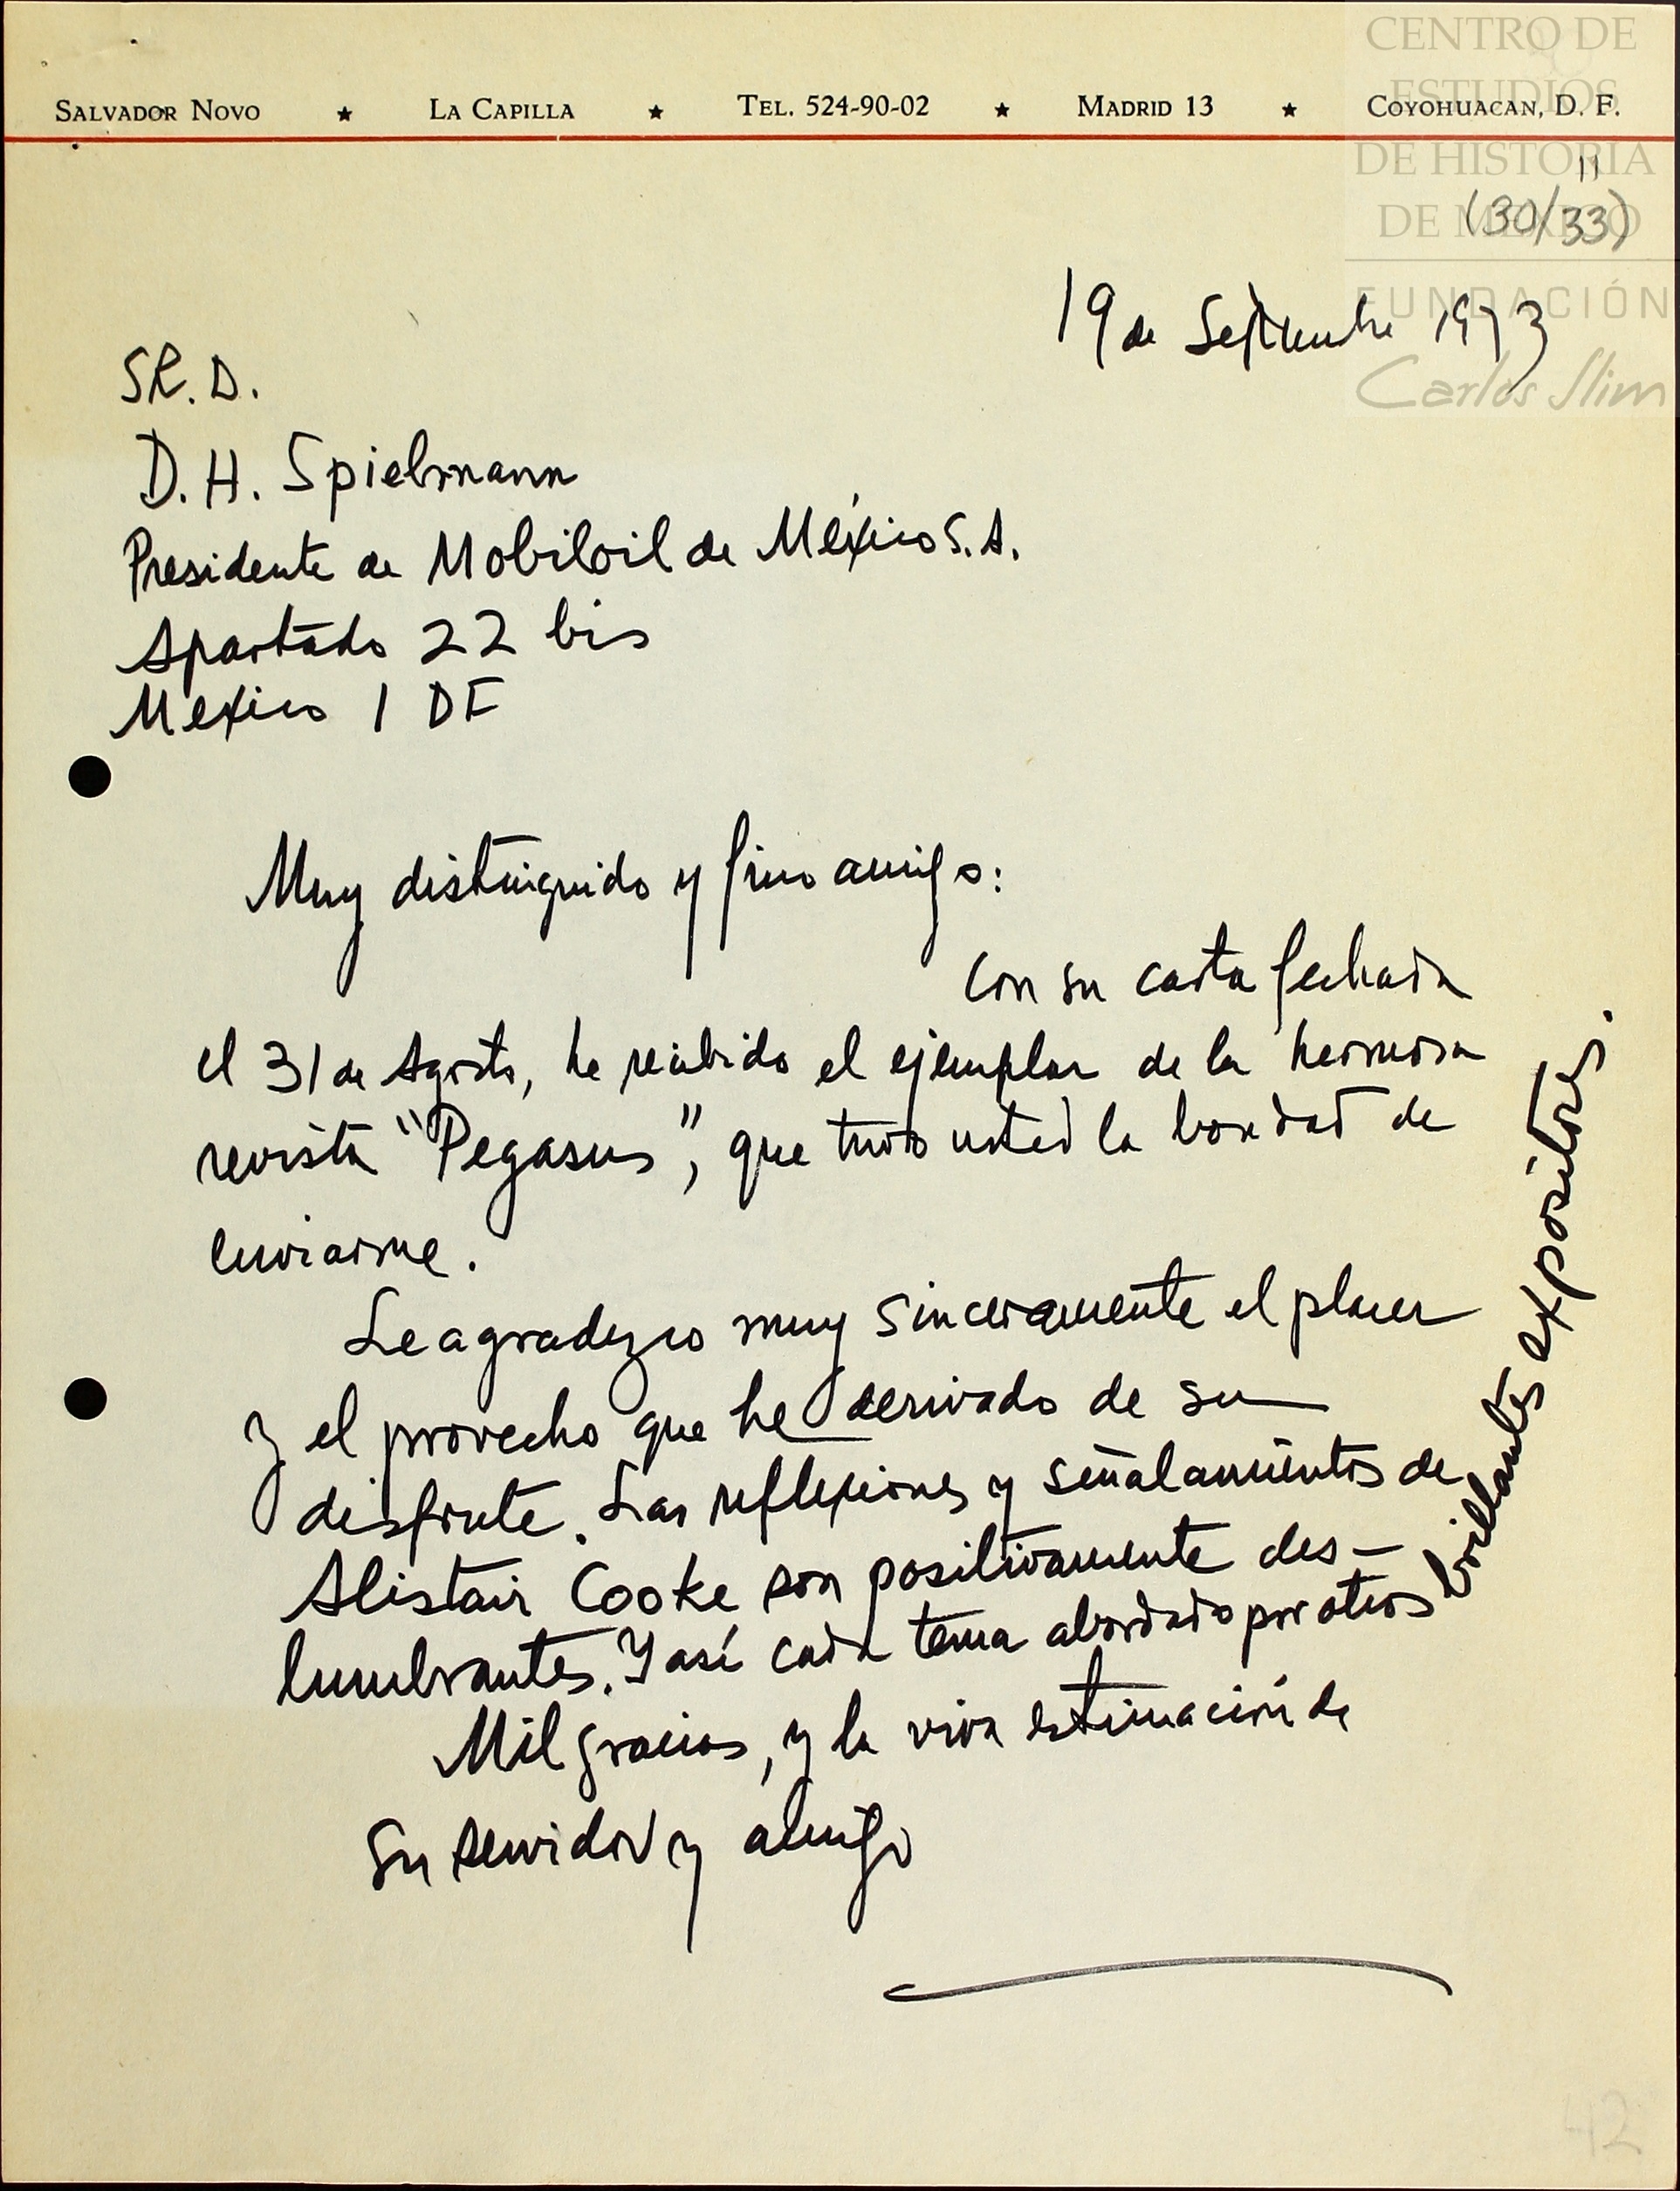 SALVADOR NOVO ★ LA CAPILLA ★ TEL. 524-90-02 ★ MADRID 13 ★ COYOHUACAN, D. F.
CENTRO DE
ESTUDIOS
DE HISTORIA
DE MEXICO
FUNDACIÓN
Carlos Slim
11
(30/33)
19 de Septiembre 1973
SR. D.
D. H. Spielmann
Presidente de Mobiloil de México S. A.
Apartado 22 bis
Mexico 1 DF
Muy distinguido y fino amigo:
Con su carta fechada
el 31 de Agosto, he recibido el ejemplar de la hermosa
revista "Pegasus", que tuvo usted la bondad de
enviarme.
Le agradezco muy sinceramente el placer
y el provecho que he derivado de su
disfrute. Las reflexiones y señalamientos de
Alistair Cooke son positivamente des-
lumbrantes. Y así cada tema abordado por otros
brillantes expositores.
Mil gracias, y la viva estimación de
su servidor y amigo
42